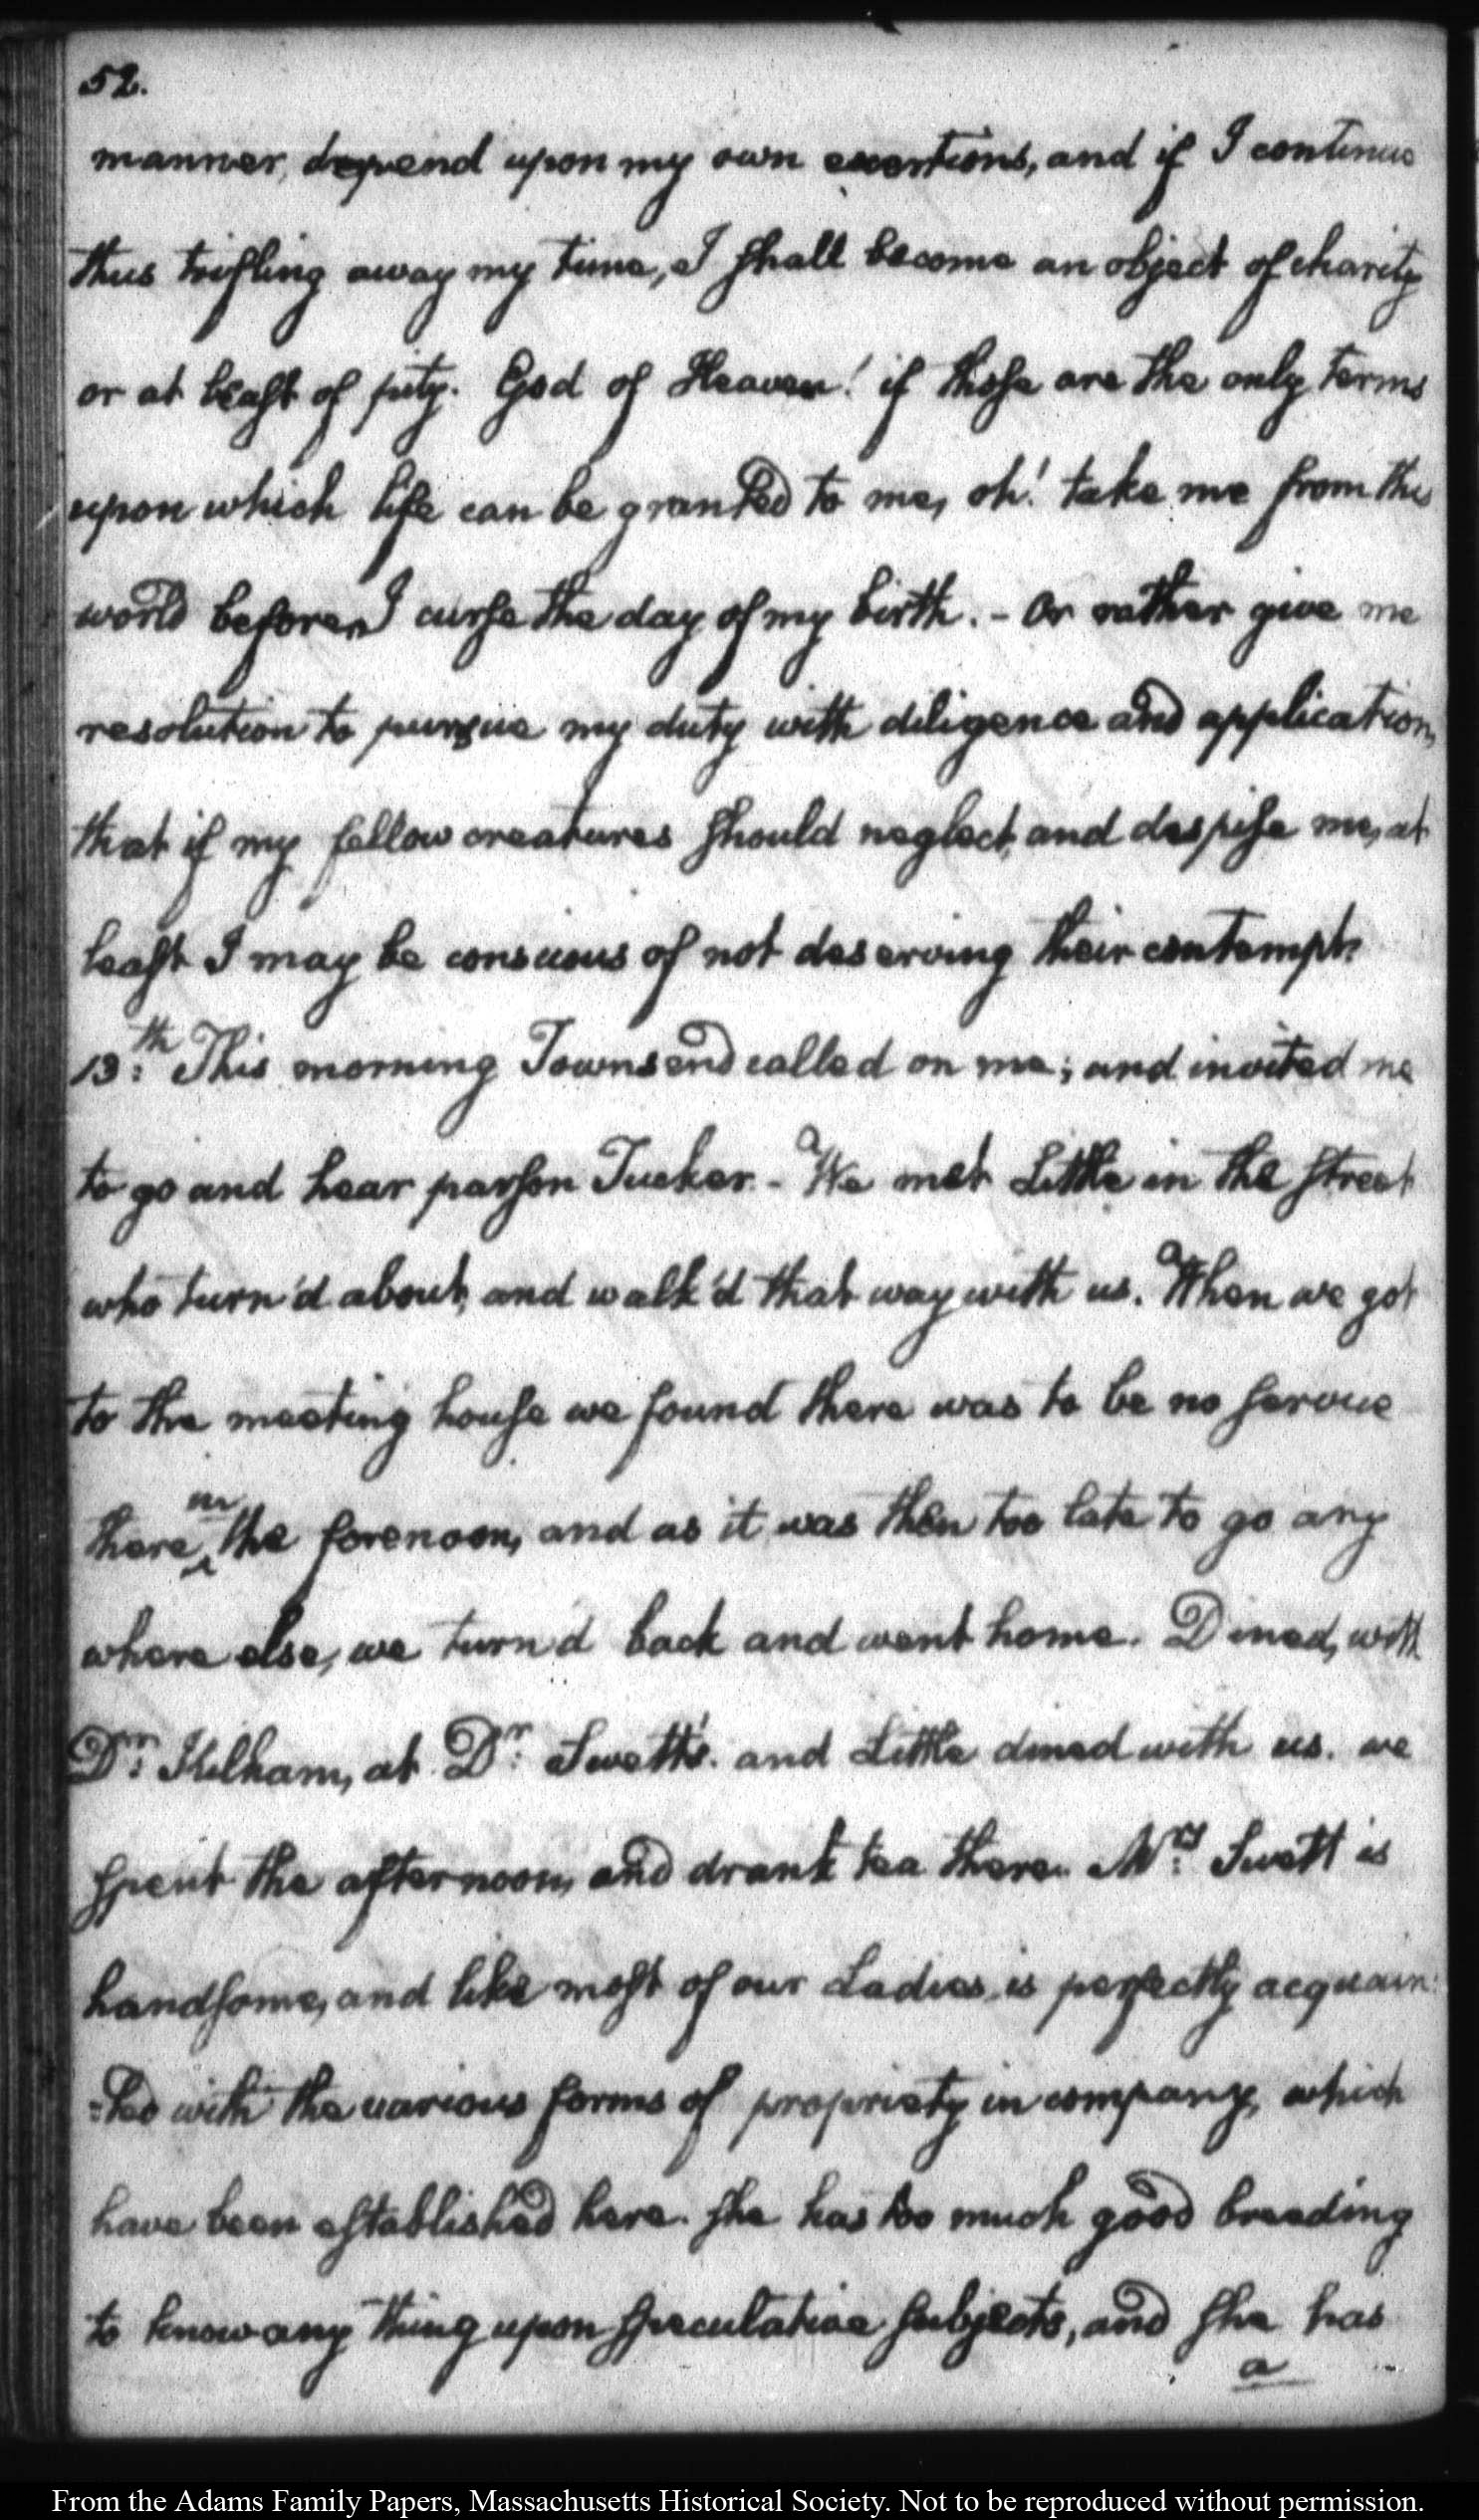 52.
manner, depend upon my own exertions, and if I continue
thus trifling away my time, I shall become an object of charity
or at least of pity. God of Heaven! if those are the only terms
upon which life can be granted to me, oh! take me from this
world before I curse the day of my birth. - Or rather give me
resolution to pursue my duty with diligence and application,
that if my fellow creatures should neglect, and despise me, at
least I may be conscious of not deserving their contempt.
13:th This morning Townsend called on me; and invited me
to go and hear parson Tucker. - We met Little in the street
who turn'd about, and walk'd that way with us. When we got
to the meeting house we found there was to be no service
there in the forenoon, and as it was then too late to go any
where else, we turn'd back and went home. Dined, with
Dr: Kilham, at Dr: Swett's. and Little dined with us. we
spent the afternoon, and drank tea there. Mrs: Swett is
handsome, and like most of our Ladies, is perfectly acquain:
:ted with the various forms of propriety in company, which
have been established here. she has too much good breeding
to know any thing upon speculative subjects, and she has
a
From the Adams Family Papers, Massachusetts Historical Society. Not to be reproduced without permission.